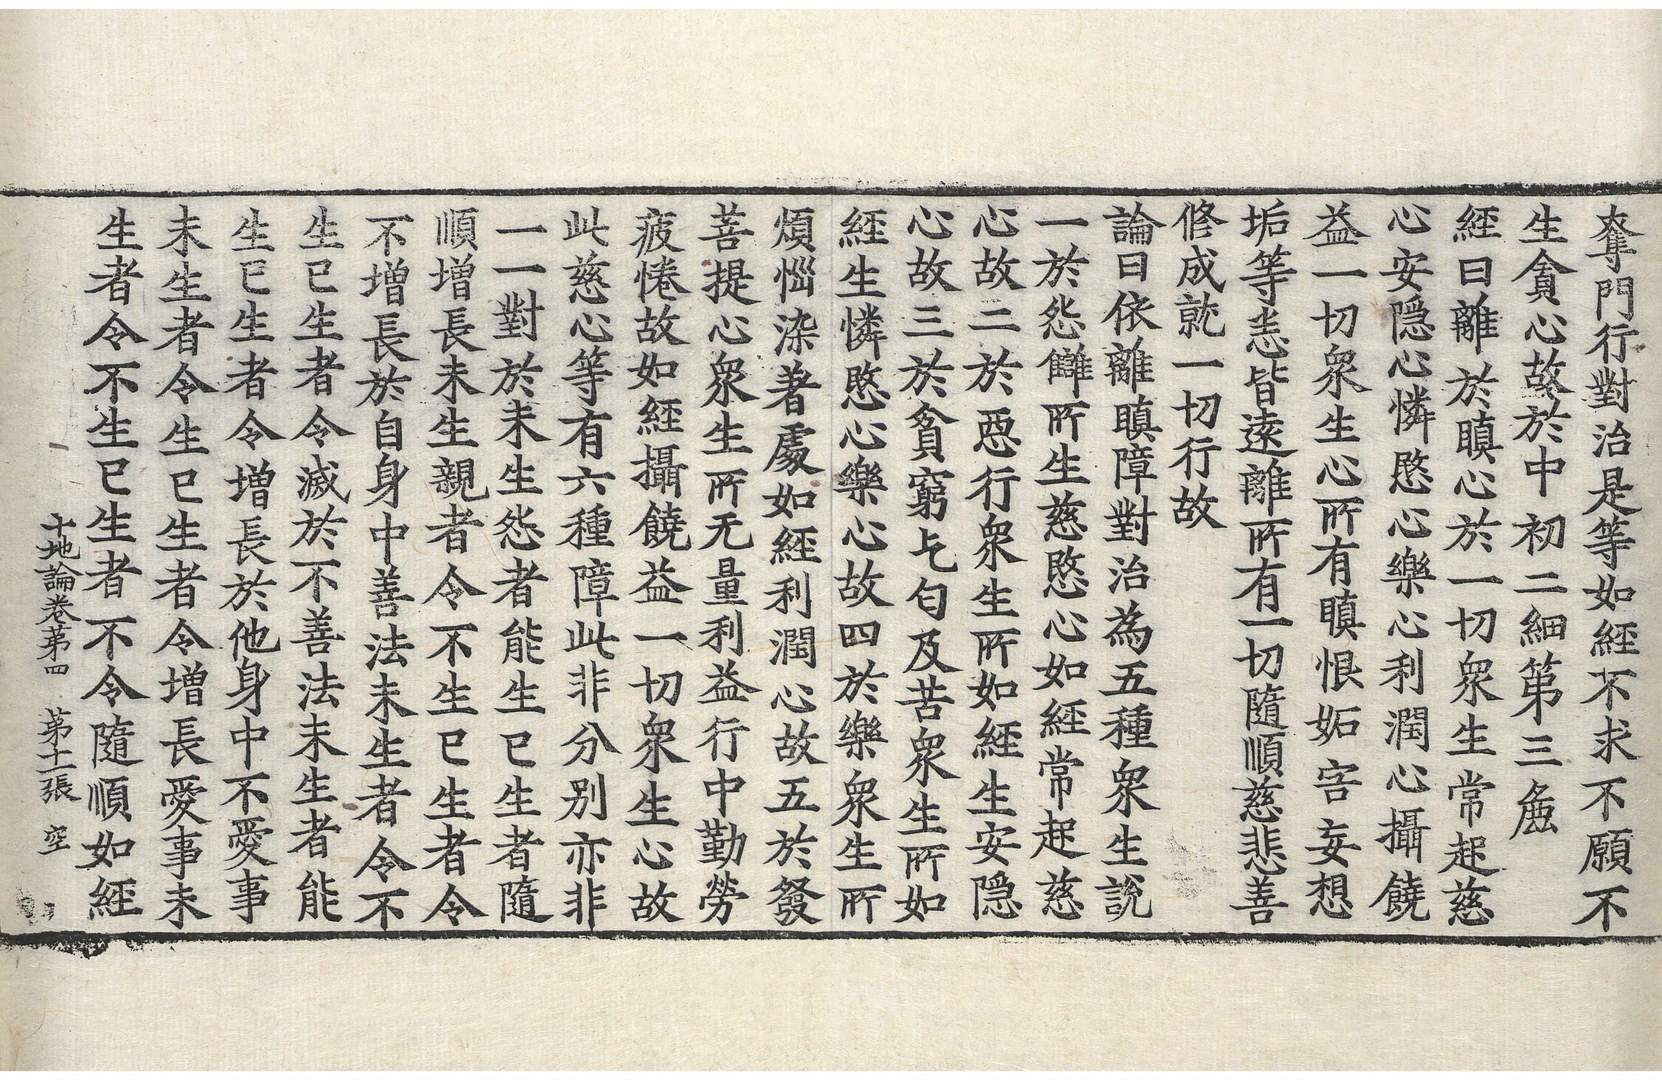 奪門行對治是等如經不求不願不
生貪心故於中初二細第三麁
經曰離於瞋心於一切衆生常起慈
心安隠心憐愍心樂心利潤心攝饒
益一切衆生心所有瞋恨妬害妄想
垢等恚皆遠離所有一切隨順慈悲善
修成就一切行故
論曰依離瞋障對治為五種衆生說
一於怨讎所生慈愍心如經常起慈
心故二於惡行衆生所如經生安隠
心故三於貧窮乞匃及苦衆生所如
經生憐愍心樂心故四於樂衆生所
煩惱染著處如經利潤心故五於發
菩提心衆生所无量利益行中勤勞
疲惓故如經攝饒益一切衆生心故
此慈心等有六種障此非分別亦非
一一對於未生怨者能生已生者隨
順增長未生親者令不生已生者令
不增長於自身中善法未生者令不
生已生者令滅於不善法未生者能
生已生者令增長於他身中不愛事
未生者令生已生者令增長愛事未
生者令不生已生者不令隨順如經
十地論卷第四　第十一張　空